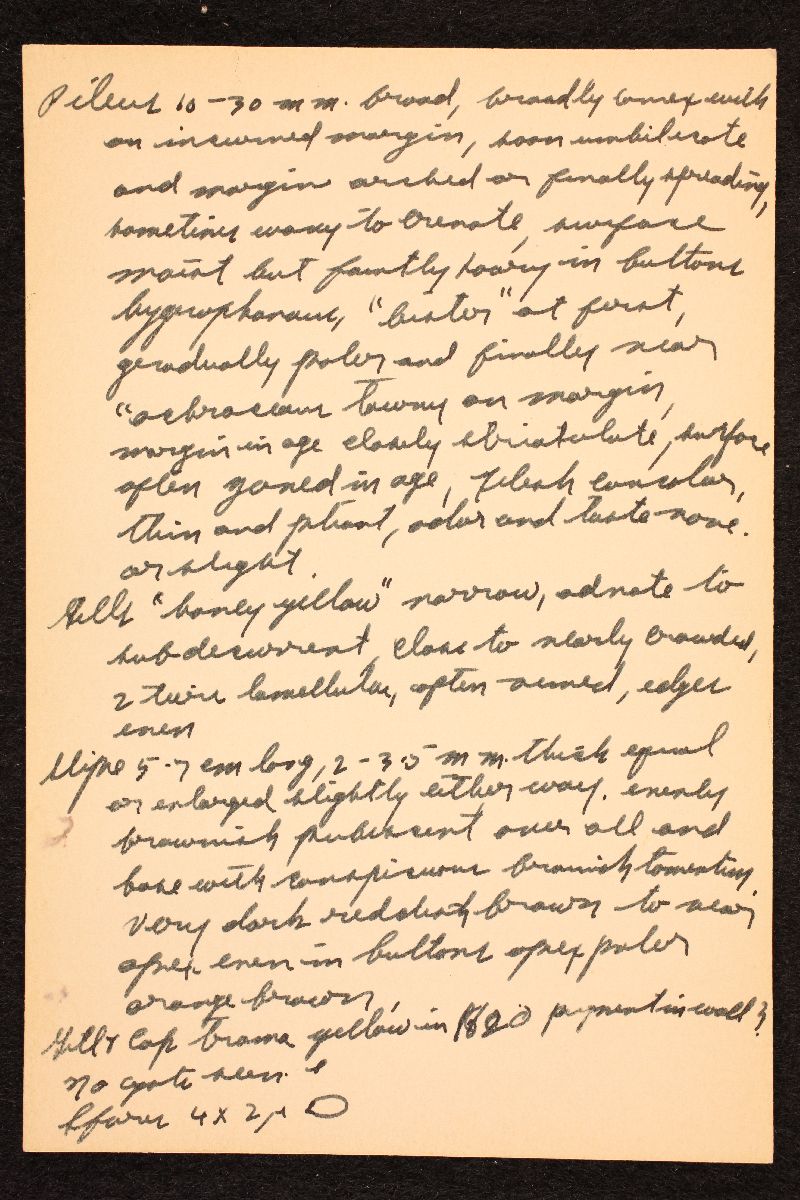 Pileus 10-30 mm. broad, broadly convex with
an incurved margin, soon umbilicate
and margin arched or finally spreading,
sometimes wavy to crenate, surface
moist but faintly hoary in buttons
hygrophanous, "bister" at first,
gradually paler and finally near
"ochraceous tawny on margin,
margin in age closely striatulate, surface
often zoned in age, flesh concolor,
thin and pliant, odor and taste none.
or slight.
Gills "honey yellow" narrow, adnate to
subdecurrent, close to nearly crowded,
2 tiers lamellulae, often veined, edges
even
Stipe 5-7 cm long, 2-3.5 mm. thick equal
or enlarged slightly either way. evenly
brownish pubescent over all and
base with conspicuous brownish tomentum
very dark reddish brown to near
apex even in buttons apex paler
orange brown,
Gill & Cap trama yellow in pigment in wall?
no cysts seen.
Spores 4 x 2 µ